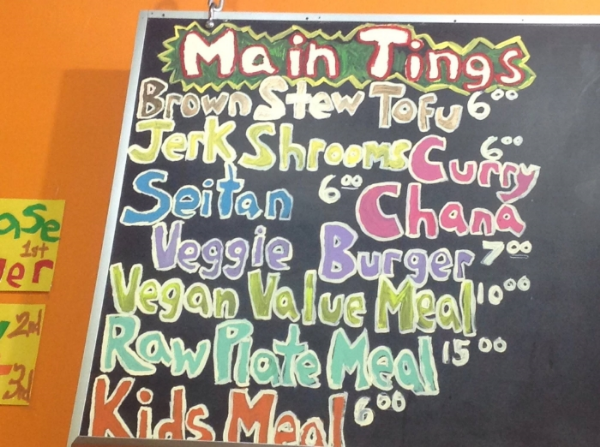 Main Tings
Brown Stew Tofu 6.00
Jerk Shrooms 6.00
Curry
Seitan 6.00 Chana
Veggie Burger 7.00
Vegan Value Meal 10.00
Raw Plate Meal 15.00
Kids Meal 6.00
1st
2nd
3rd